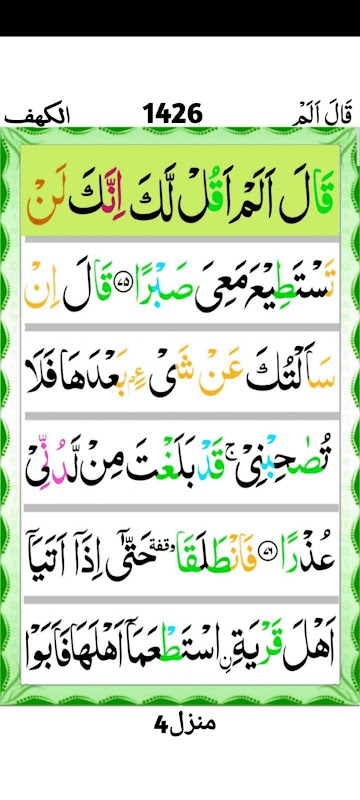 قَالَ اَلَمْ 1426 الكهف
قَالَ اَلَمْ اَقُلْ لَّكَ اِنَّكَ لَنْ
تَسْتَطِيْعَ مَعِىَ صَبْرًا ﴿۷۵﴾ قَالَ اِنْ
سَاَلْتُكَ عَنْ شَىْءٍۭ بَعْدَهَا فَلَا
تُصٰحِبْنِىْ ۚ قَدْ بَلَغْتَ مِنْ لَّدُنِّىْ
عُذْرًا ﴿۷۶﴾ فَانْطَلَقَا وقفة حَتّٰۤى اِذَاۤ اَتَيَاۤ
اَهْلَ قَرْيَةِ ِۨاسْتَطْعَمَاۤ اَهْلَهَا فَاَبَوْا
منزل4